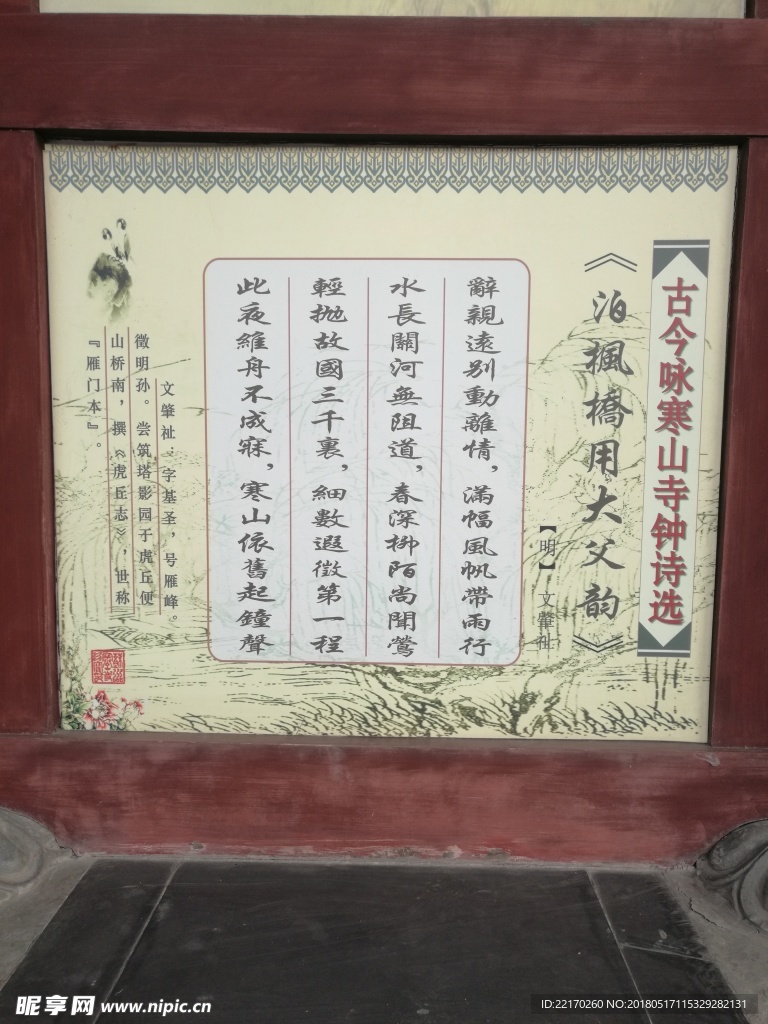 古今咏寒山寺钟诗选
《泊楓橋用大父韵》
【明】 文肇祉
辭親遠别動離情，滿幅風帆帶雨行
水長關河無阻道，春深柳陌尚聞鶯
輕拋故國三千裏，細數遐徵第一程
此夜維舟不成寐，寒山依舊起鐘聲
文肇祉：字基圣，号雁峰。
徵明孙。尝筑塔影园于虎丘便
山桥南，撰《虎丘志》，世称
『雁门本』。
昵享网 www.nipic.cn
ID:22170260 NO:20180517115329282131